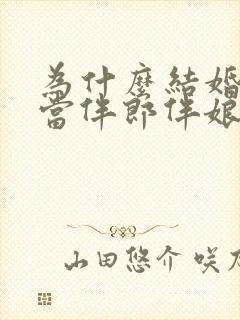 為什麼結婚
當伴郎伴娘
山田悠介 咲